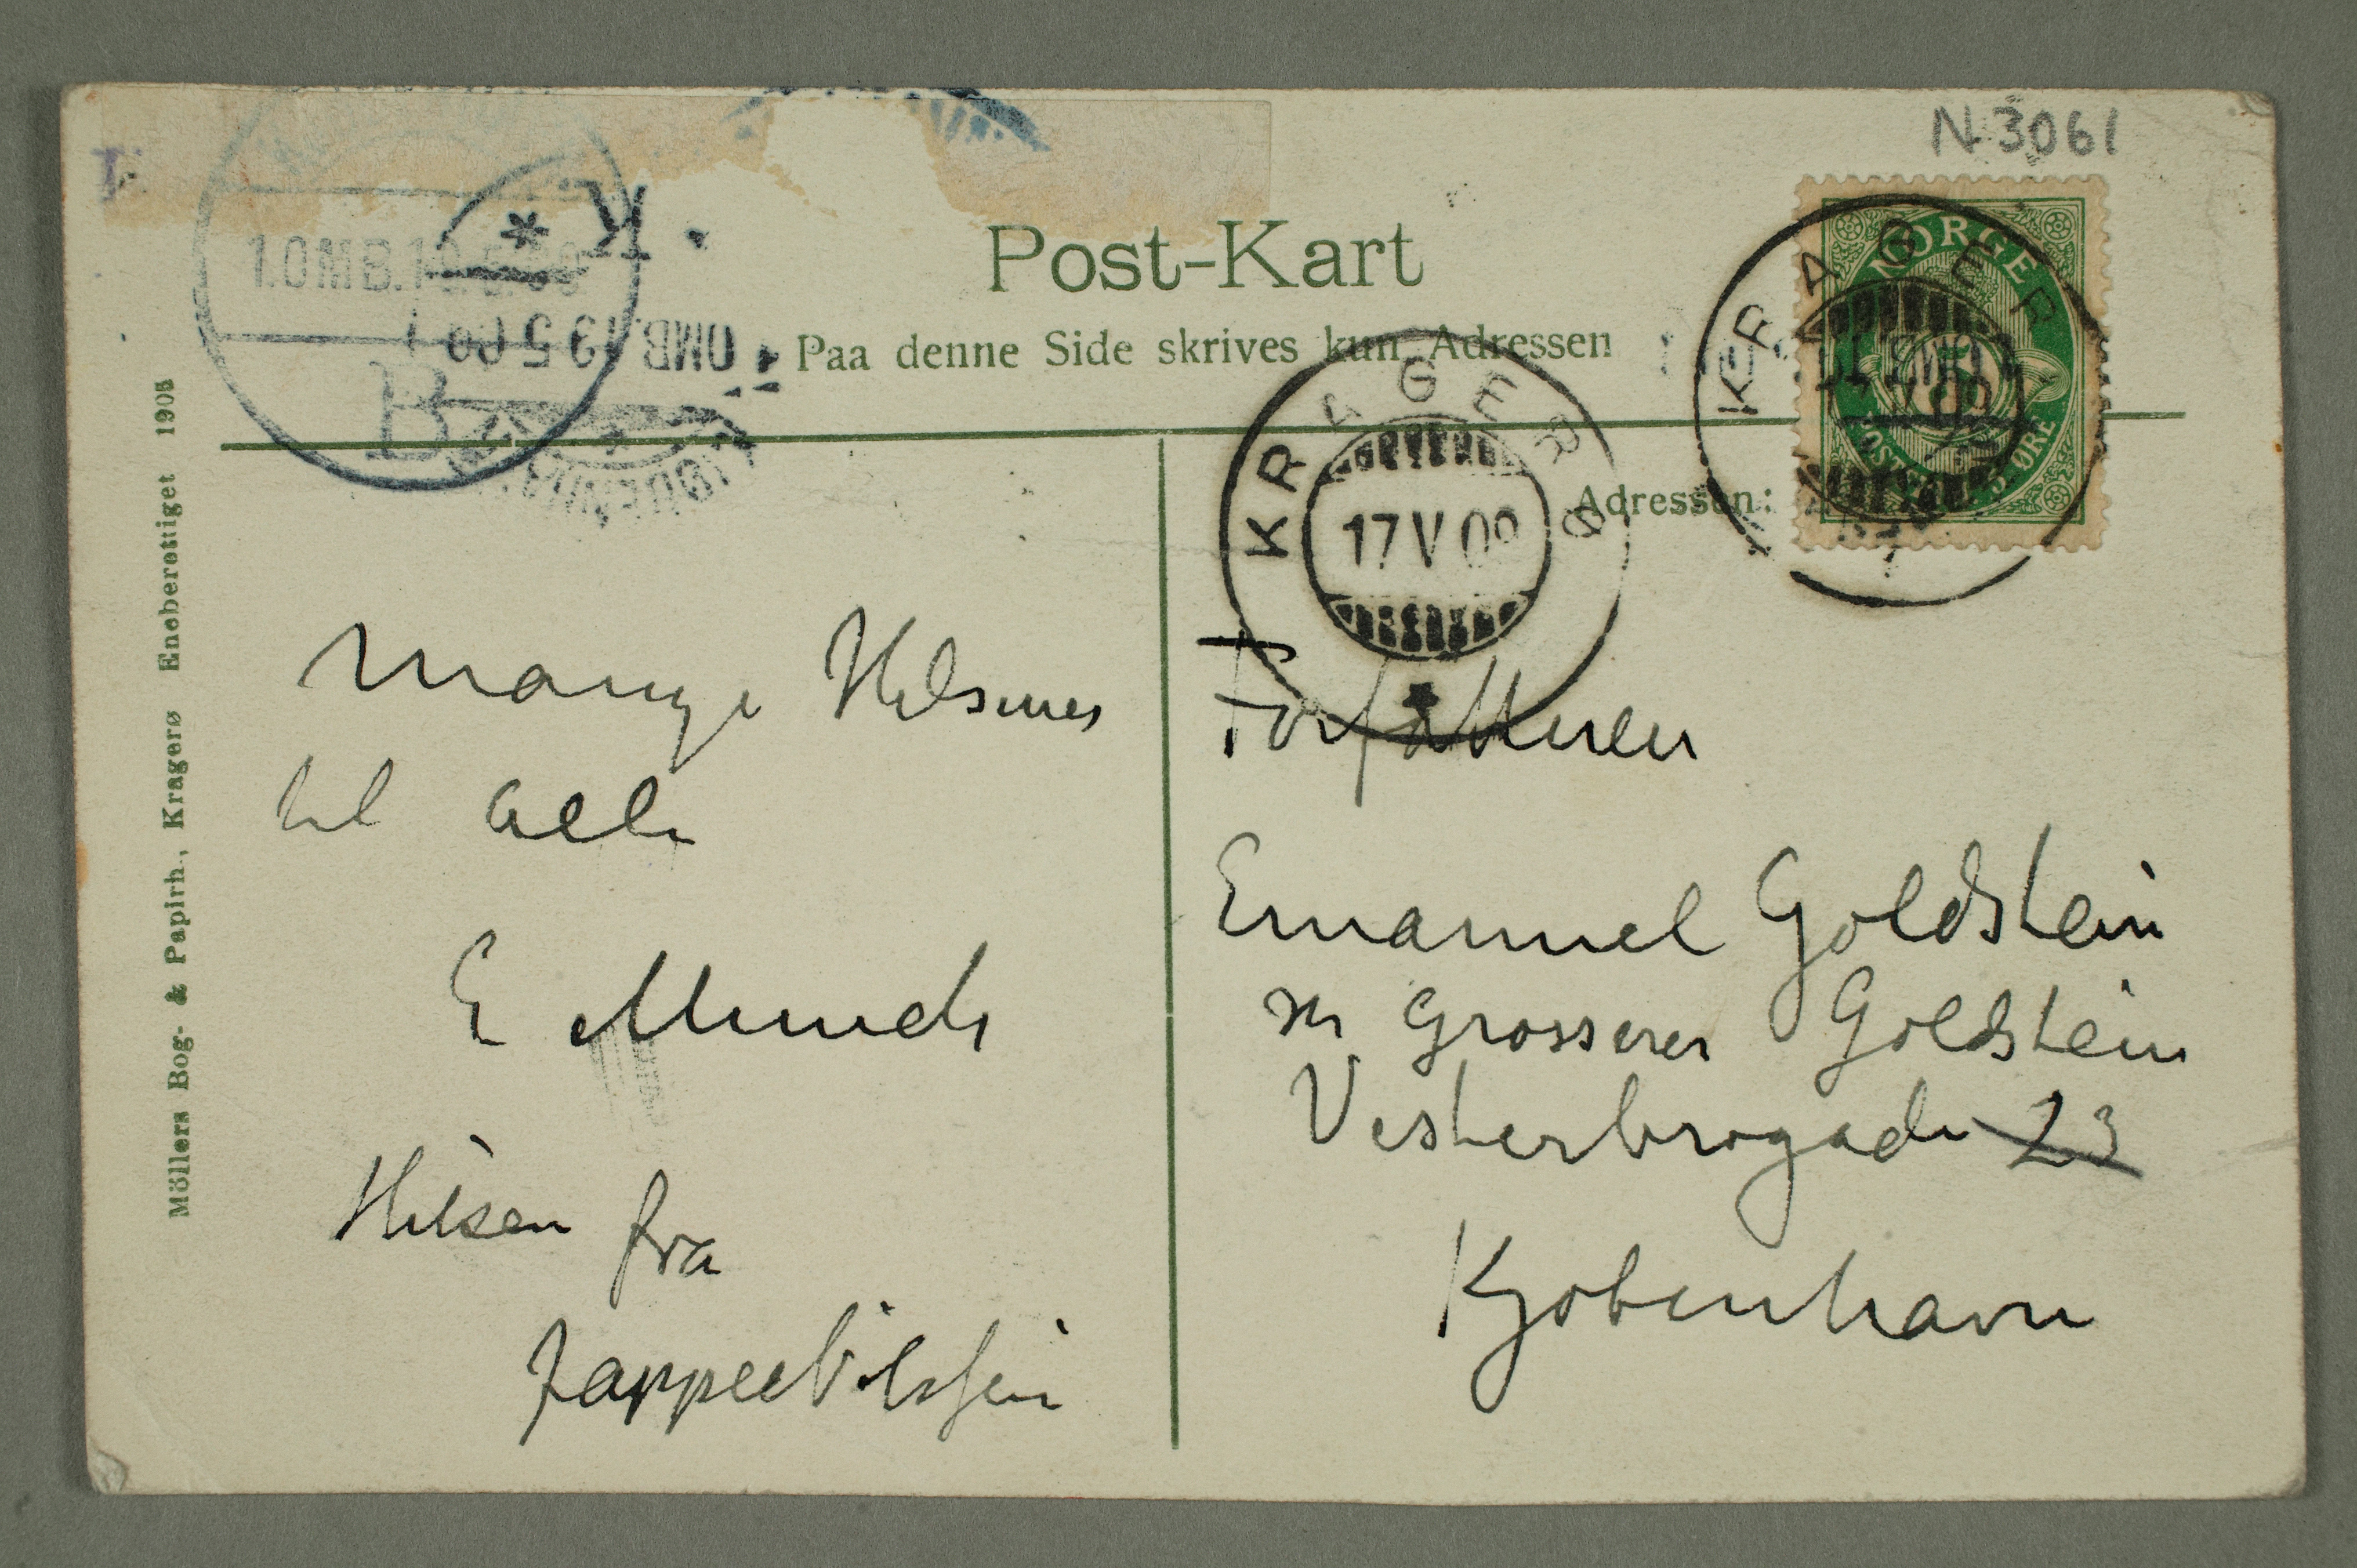 N 3061
Post-Kart
Paa denne Side skrives kun Adressen
Adressen:
NORGE
POSTFRIM 5 ØRE
KRAGERØ
17 V 09
KRAGERØ
1.OMB.19.5.09
B
K.
OMB. 19 5 09
Möllers Bog- & Papirh., Kragerø Eneberettiget 1905
Mange Hilsener
til alle
E Munch
Hilsen fra
Jappe Nilssen
Forfatteren
Emanuel Goldstein
Hr Grosserer Goldstein
Vesterbrogade 23
Kjøbenhavn